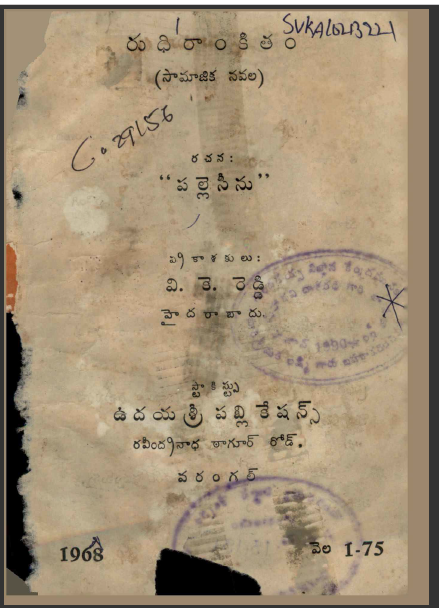 SVKAL0213221
రుధిరాంకితం
(సామాజిక నవల)
రచన:
"పల్లెసీను"
ప్రకాశకులు:
వి. కె. రెడ్డి
హైదరాబాదు.
స్టాకిస్టు
ఉదయశ్రీ పబ్లికేషన్స్
రవీంద్రనాధ ఠాగూర్ రోడ్.
వరంగల్
1968 వెల 1-75